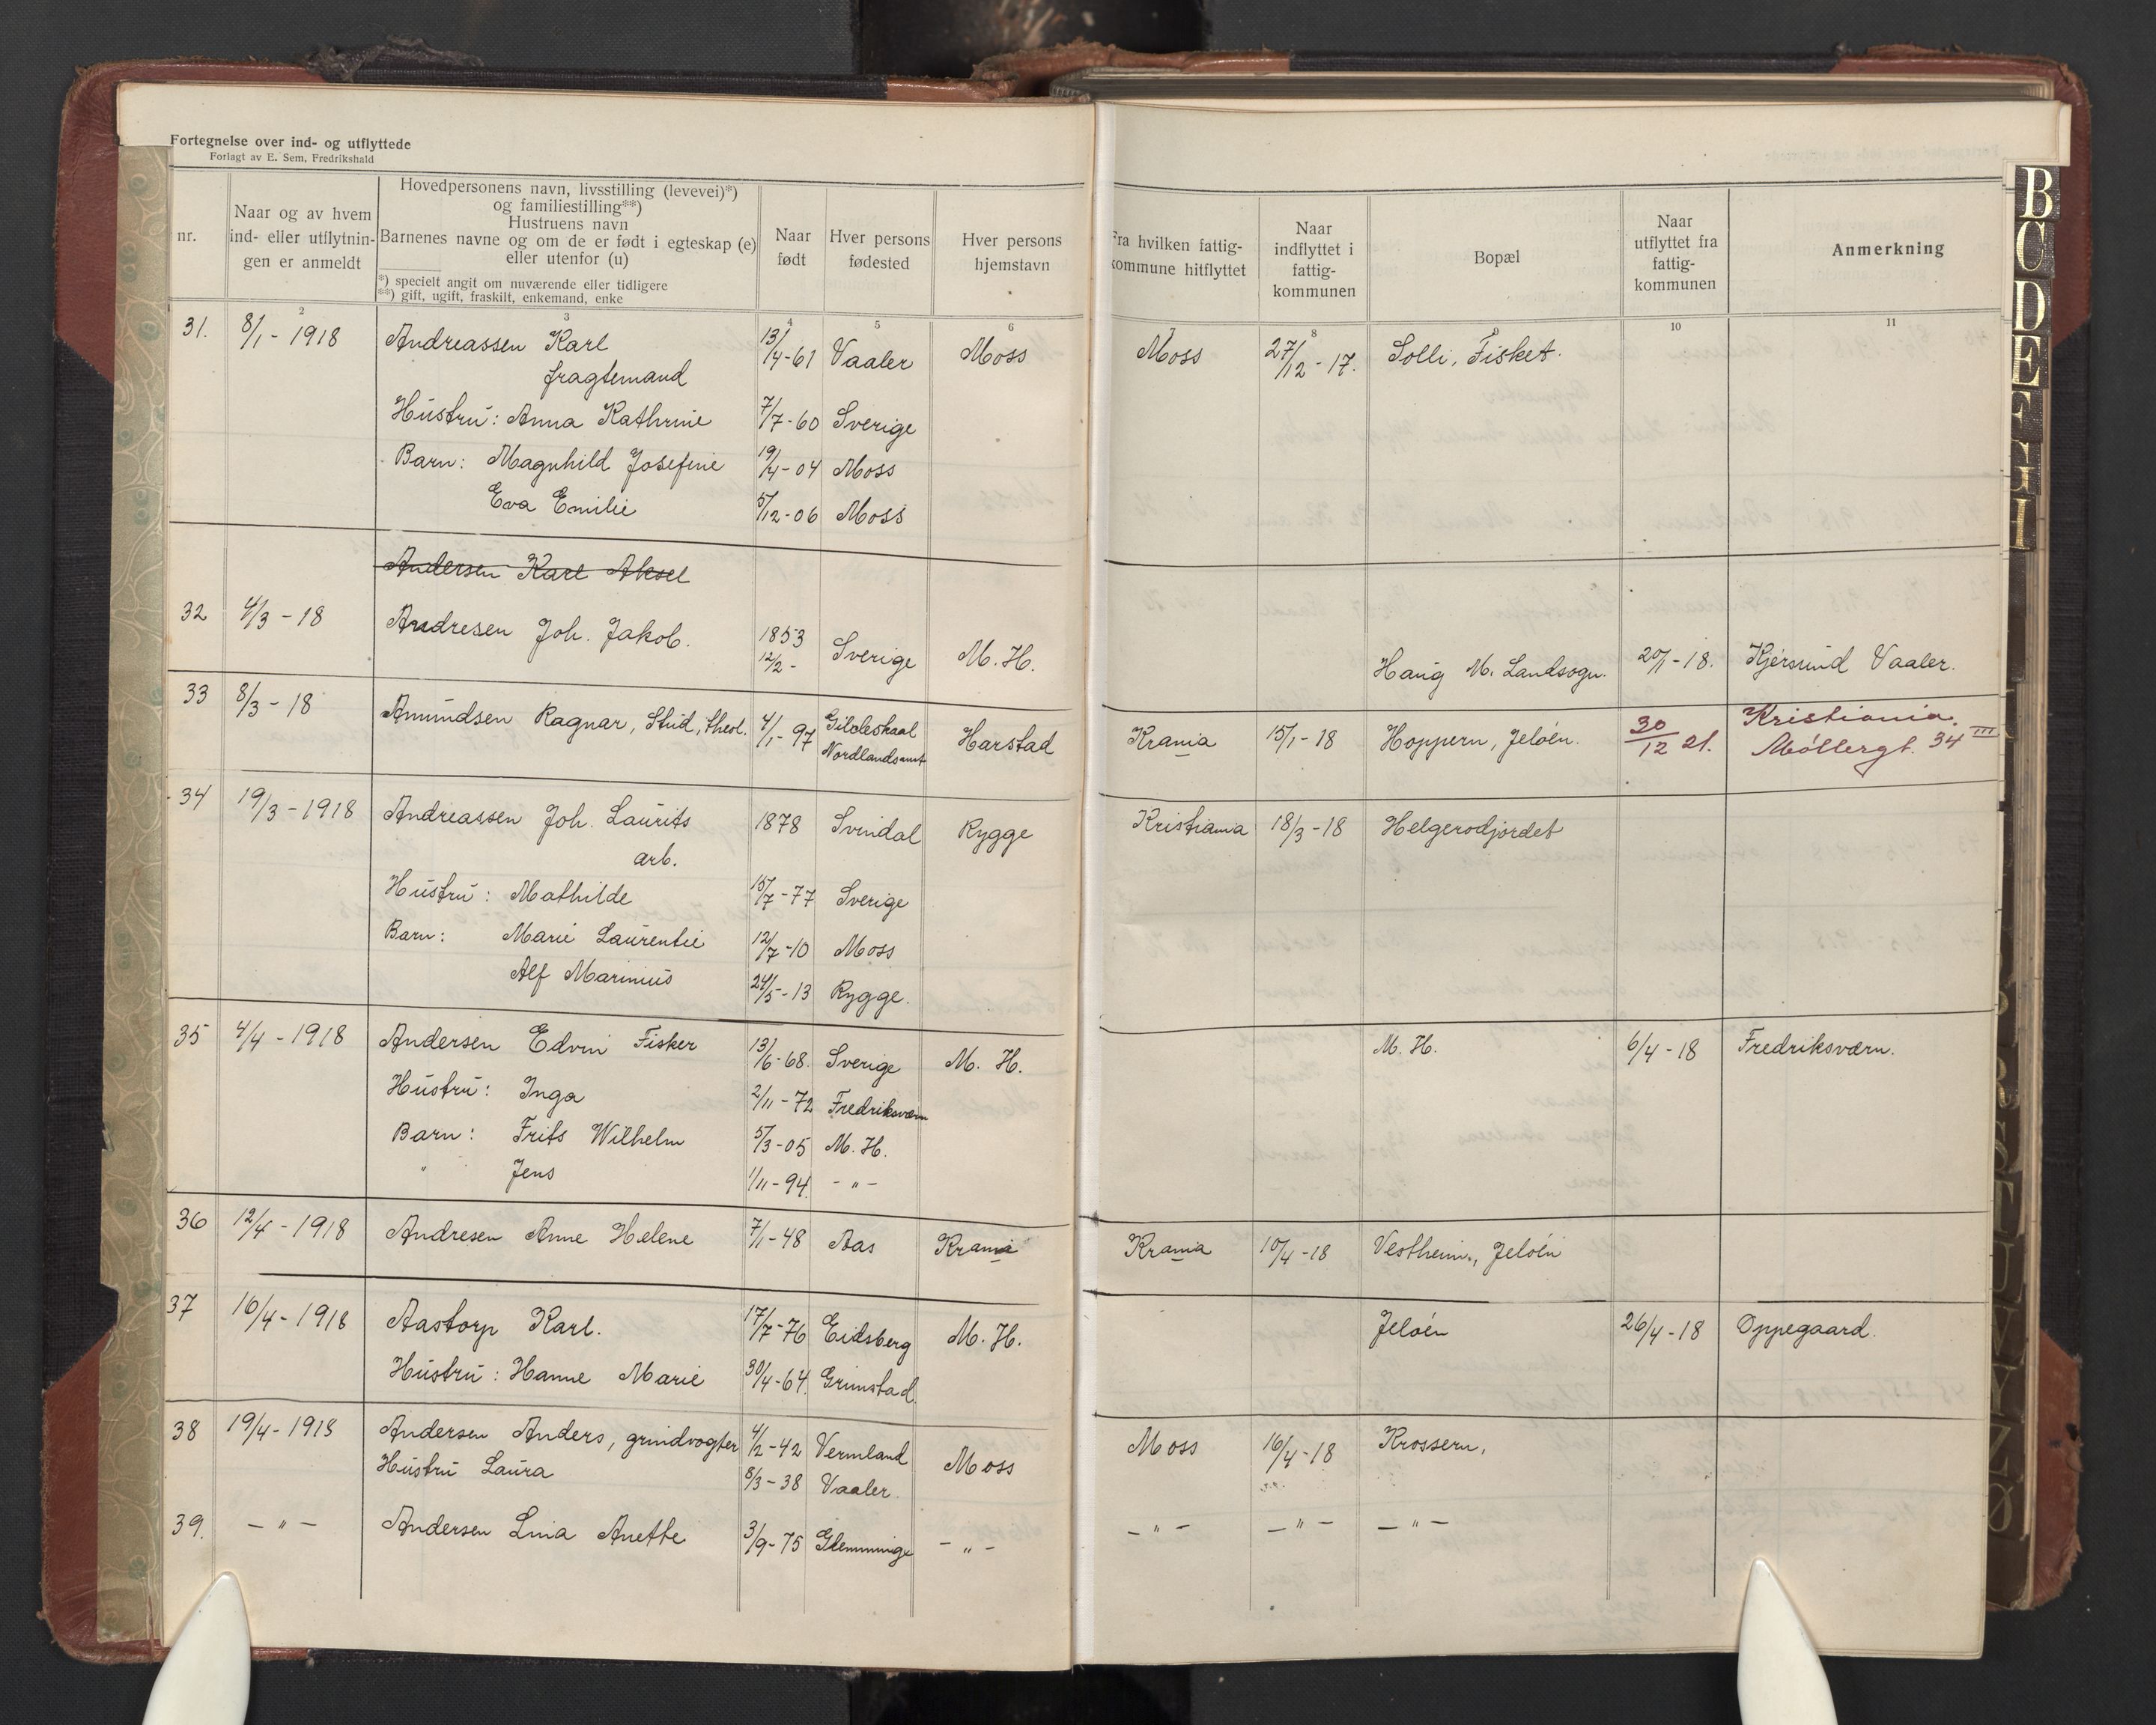 Fortegnelse over ind- og utflyttede
Forlagt av E. Sem, Fredrikshald
nr.
Naar og av hvem
ind- eller utflytnin-
gen er anmeldt
Hovedpersonens navn, livsstilling (levevei)*)
og familiestilling**)
Hustruens navn
Barnenes navne og om de er født i egteskap (e)
eller utenfor (u)
*) specielt angit om nuværende eller tidligere
**) gift, ugift, fraskilt, enkemand, enke
Naar
født
Hver persons
fødested
Hver persons
hjemstavn
Fra hvilken fattig-
kommune hitflyttet
Naar
indflyttet i
fattig-
kommunen
Bopæl
Naar
utflyttet fra
fattig-
kommunen
Anmerkning
2 3 4 5 6 8 9 10 11
31. 8/1 - 1918 Andreassen Karl 13/4-61 Vaaler Moss Moss 27/12 - 17. Solli, Fisket.
fragtemand
Hustru: Anna Kathrine 7/7-60 Sverige
Barn: Magnhild Josefine 19/4-04 Moss
Eva Emilie 5/12-06 Moss
Andersen Karl Aksel
32 4/3 - 18 Andresen Joh. Jakob. 1853 12/2 - Sverige M. H. Haug M. Landsogn. 20/1-18. Kjersund Vaaler.
33 8/3 - 18 Amundsen Ragnar, Stud, theol. 4/1-97 Gildeskaal Harstad Krania 15/1-18 Hoppern, Jeløen. 30/12 21. Kristiania.
Nordlandsamt Møllergt. 34 III
34 19/3 - 1918 Andreassen Joh. Laurits 1878 Svindal Rygge Kristiania 18/3-18 Helgerødjordet
arb.
Hustru: Mathilde 15/7-77 Sverige
Barn: Marie Laurentie 12/7-10 Moss
Alf Marinius 24/5-13 Rygge.
35 4/4 - 1918 Andersen Edvin Fisker 13/6-68. Sverige M. H. M. H. 6/4-18 Fredriksværn.
Hustru: Inga 2/11-72 Fredriksværn
Barn: Frits Wilhelm 5/3-05 M. H.
" Jens 1/11-94. - " -
36 12/4 - 1918 Andresen Anne Helene 7/1-48 Aas Krania Krania 10/4-18 Vestheim, Jeløen
37 16/4 - 1918 Aastorp Karl. 17/7-76 Eidsberg M. H. Jeløen 26/4-18 Oppegaard.
Hustru: Hanne Marie 30/4-64. Grimstad.
38 19/4 - 1918 Andersen Anders, grindvogter 4/2-42 Vermland Moss Moss 16/4-18 Krossern,
Hustru Laura 8/3-38 Vaaler.
39. - " - Andersen Lina Anette 3/9-75 Glemminge - " - - " - - " - - " -
B
C
D
E
F
G
I